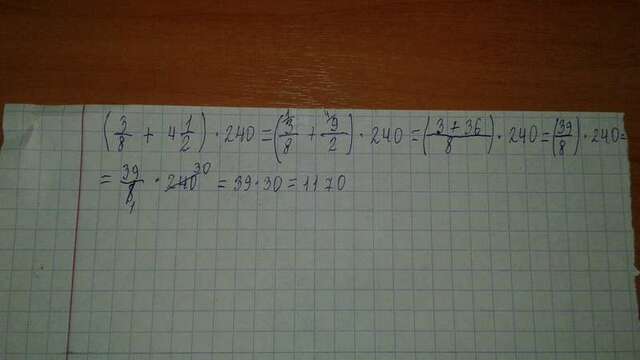 (3/8 + 4 1/2) · 240 = (¹3/8 + ⁴9/2) · 240 = (3 + 36/8) · 240 = (39/8) · 240 =
= 39/8 1 · 240 30 = 39 · 30 = 1170